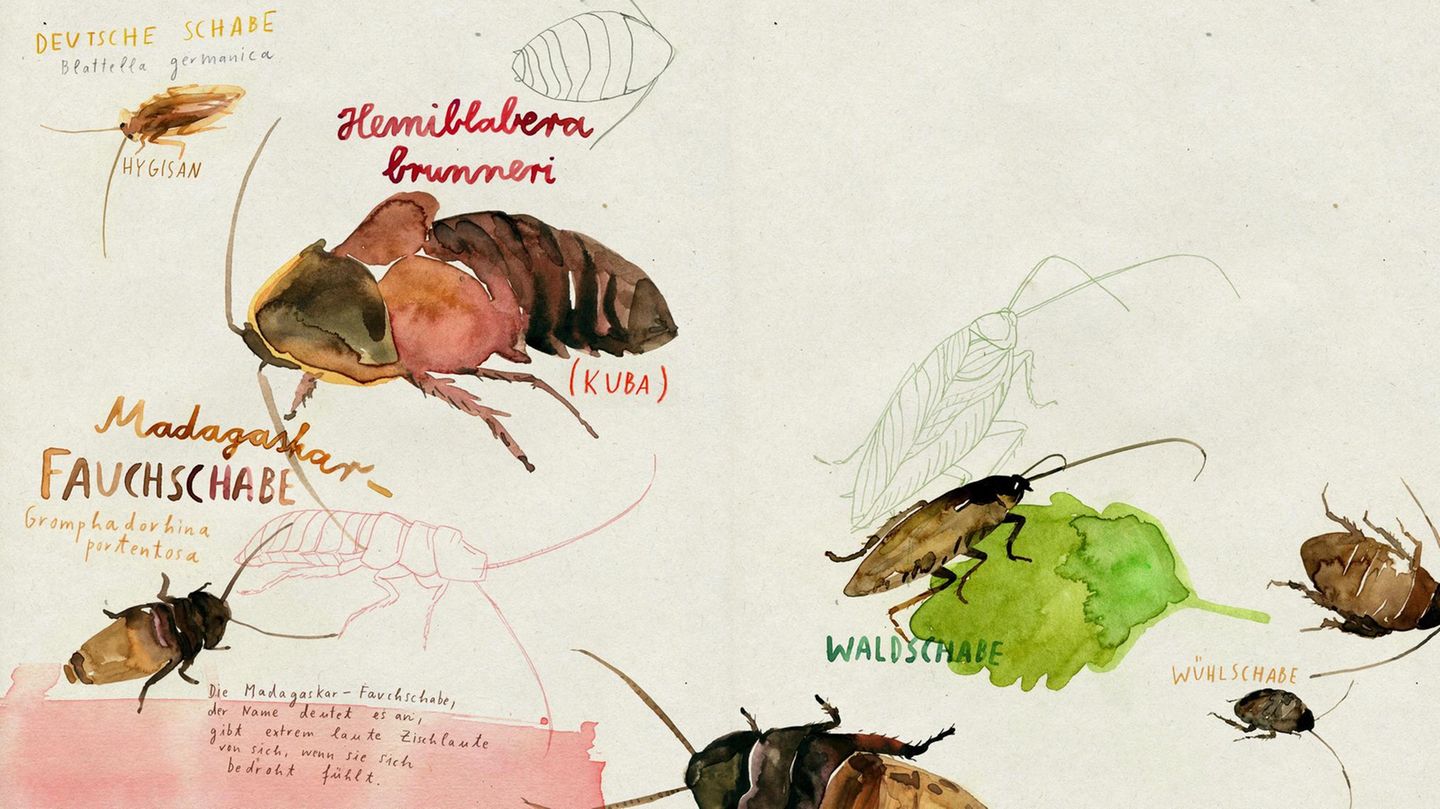 DEUTSCHE SCHABE
Blattella germanica
HYGISAN
Hemiblabera
brunneri
(KUBA)
Madagaskar-
FAUCHSCHABE
Gromphadorhina
portentosa
Die Madagaskar-Fauchschabe,
der Name deutet es an,
gibt extrem laute Zischlaute
von sich, wenn sie sich
bedroht fühlt.
WALDSCHABE
WÜHLSCHABE